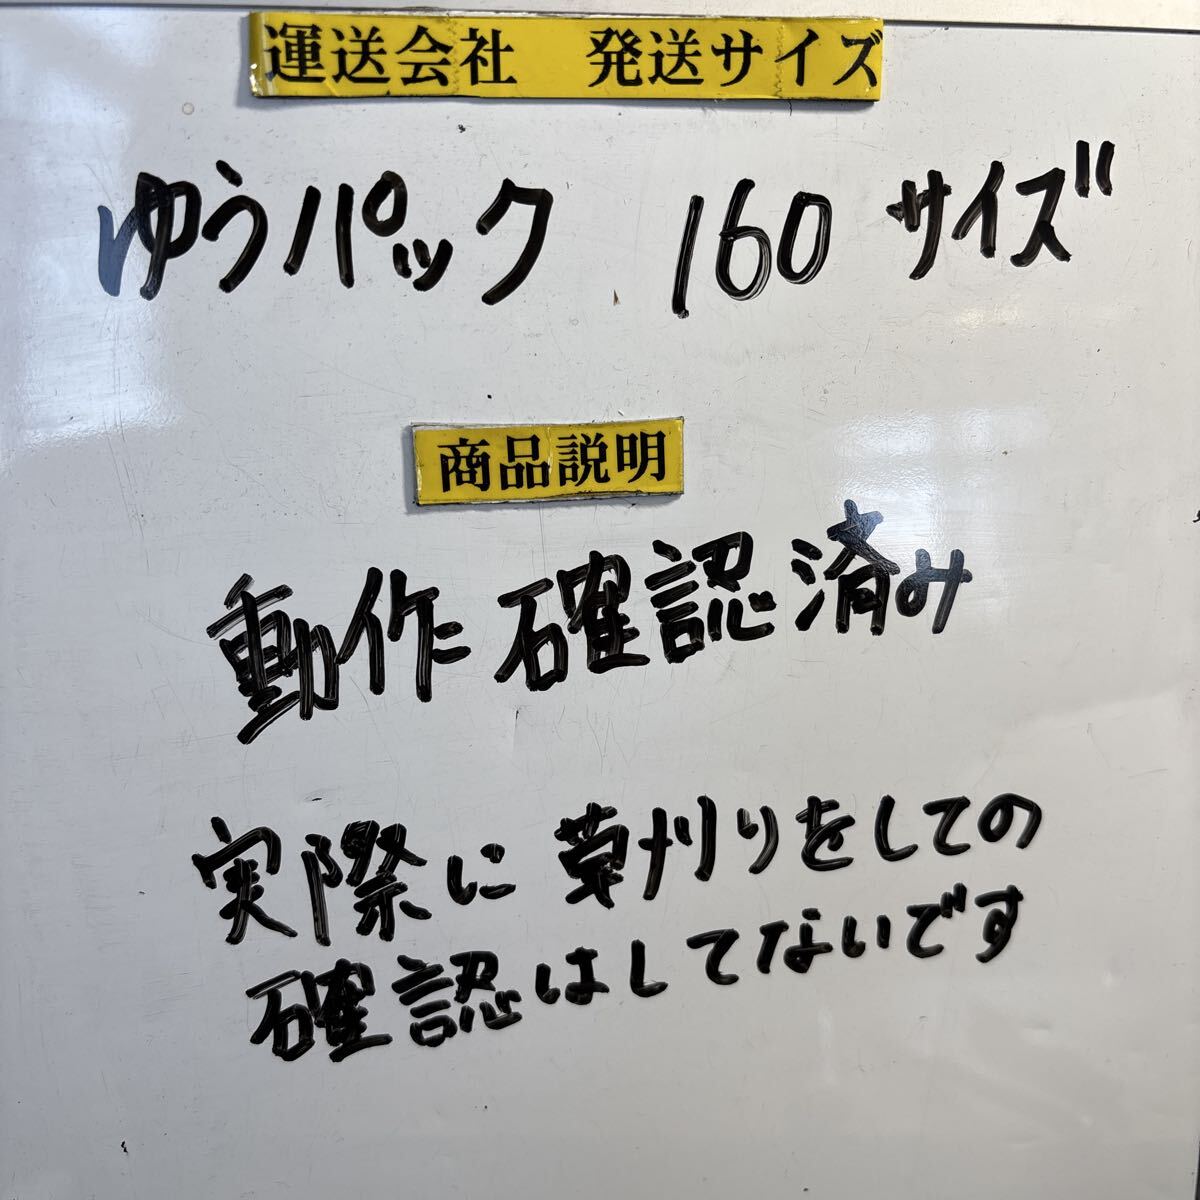 運送会社　発送サイズ
ゆうパック 160 サイズ
商品説明
動作確認済み
実際に草刈りをしての
確認はしてないです